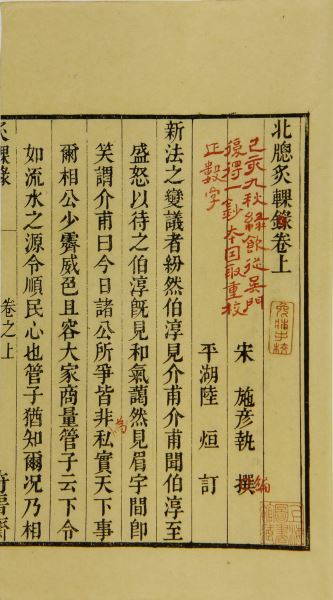 北牕炙輠錄卷上
己亥九秋綠飲從吳門
復得一鈔本因取重校
正數字
宋 施彥執 撰
編
平湖陸 烜 訂
新法之變議者紛然伯淳見介甫介甫聞伯淳至
盛怒以待之伯淳旣見和氣藹然見眉宇間卽
笑謂介甫曰今日諸公所爭皆非私實天下事
為
爾相公少霽威色且容大家商量管子云下令
如流水之源令順民心也管子猶知爾况乃相
卷之上